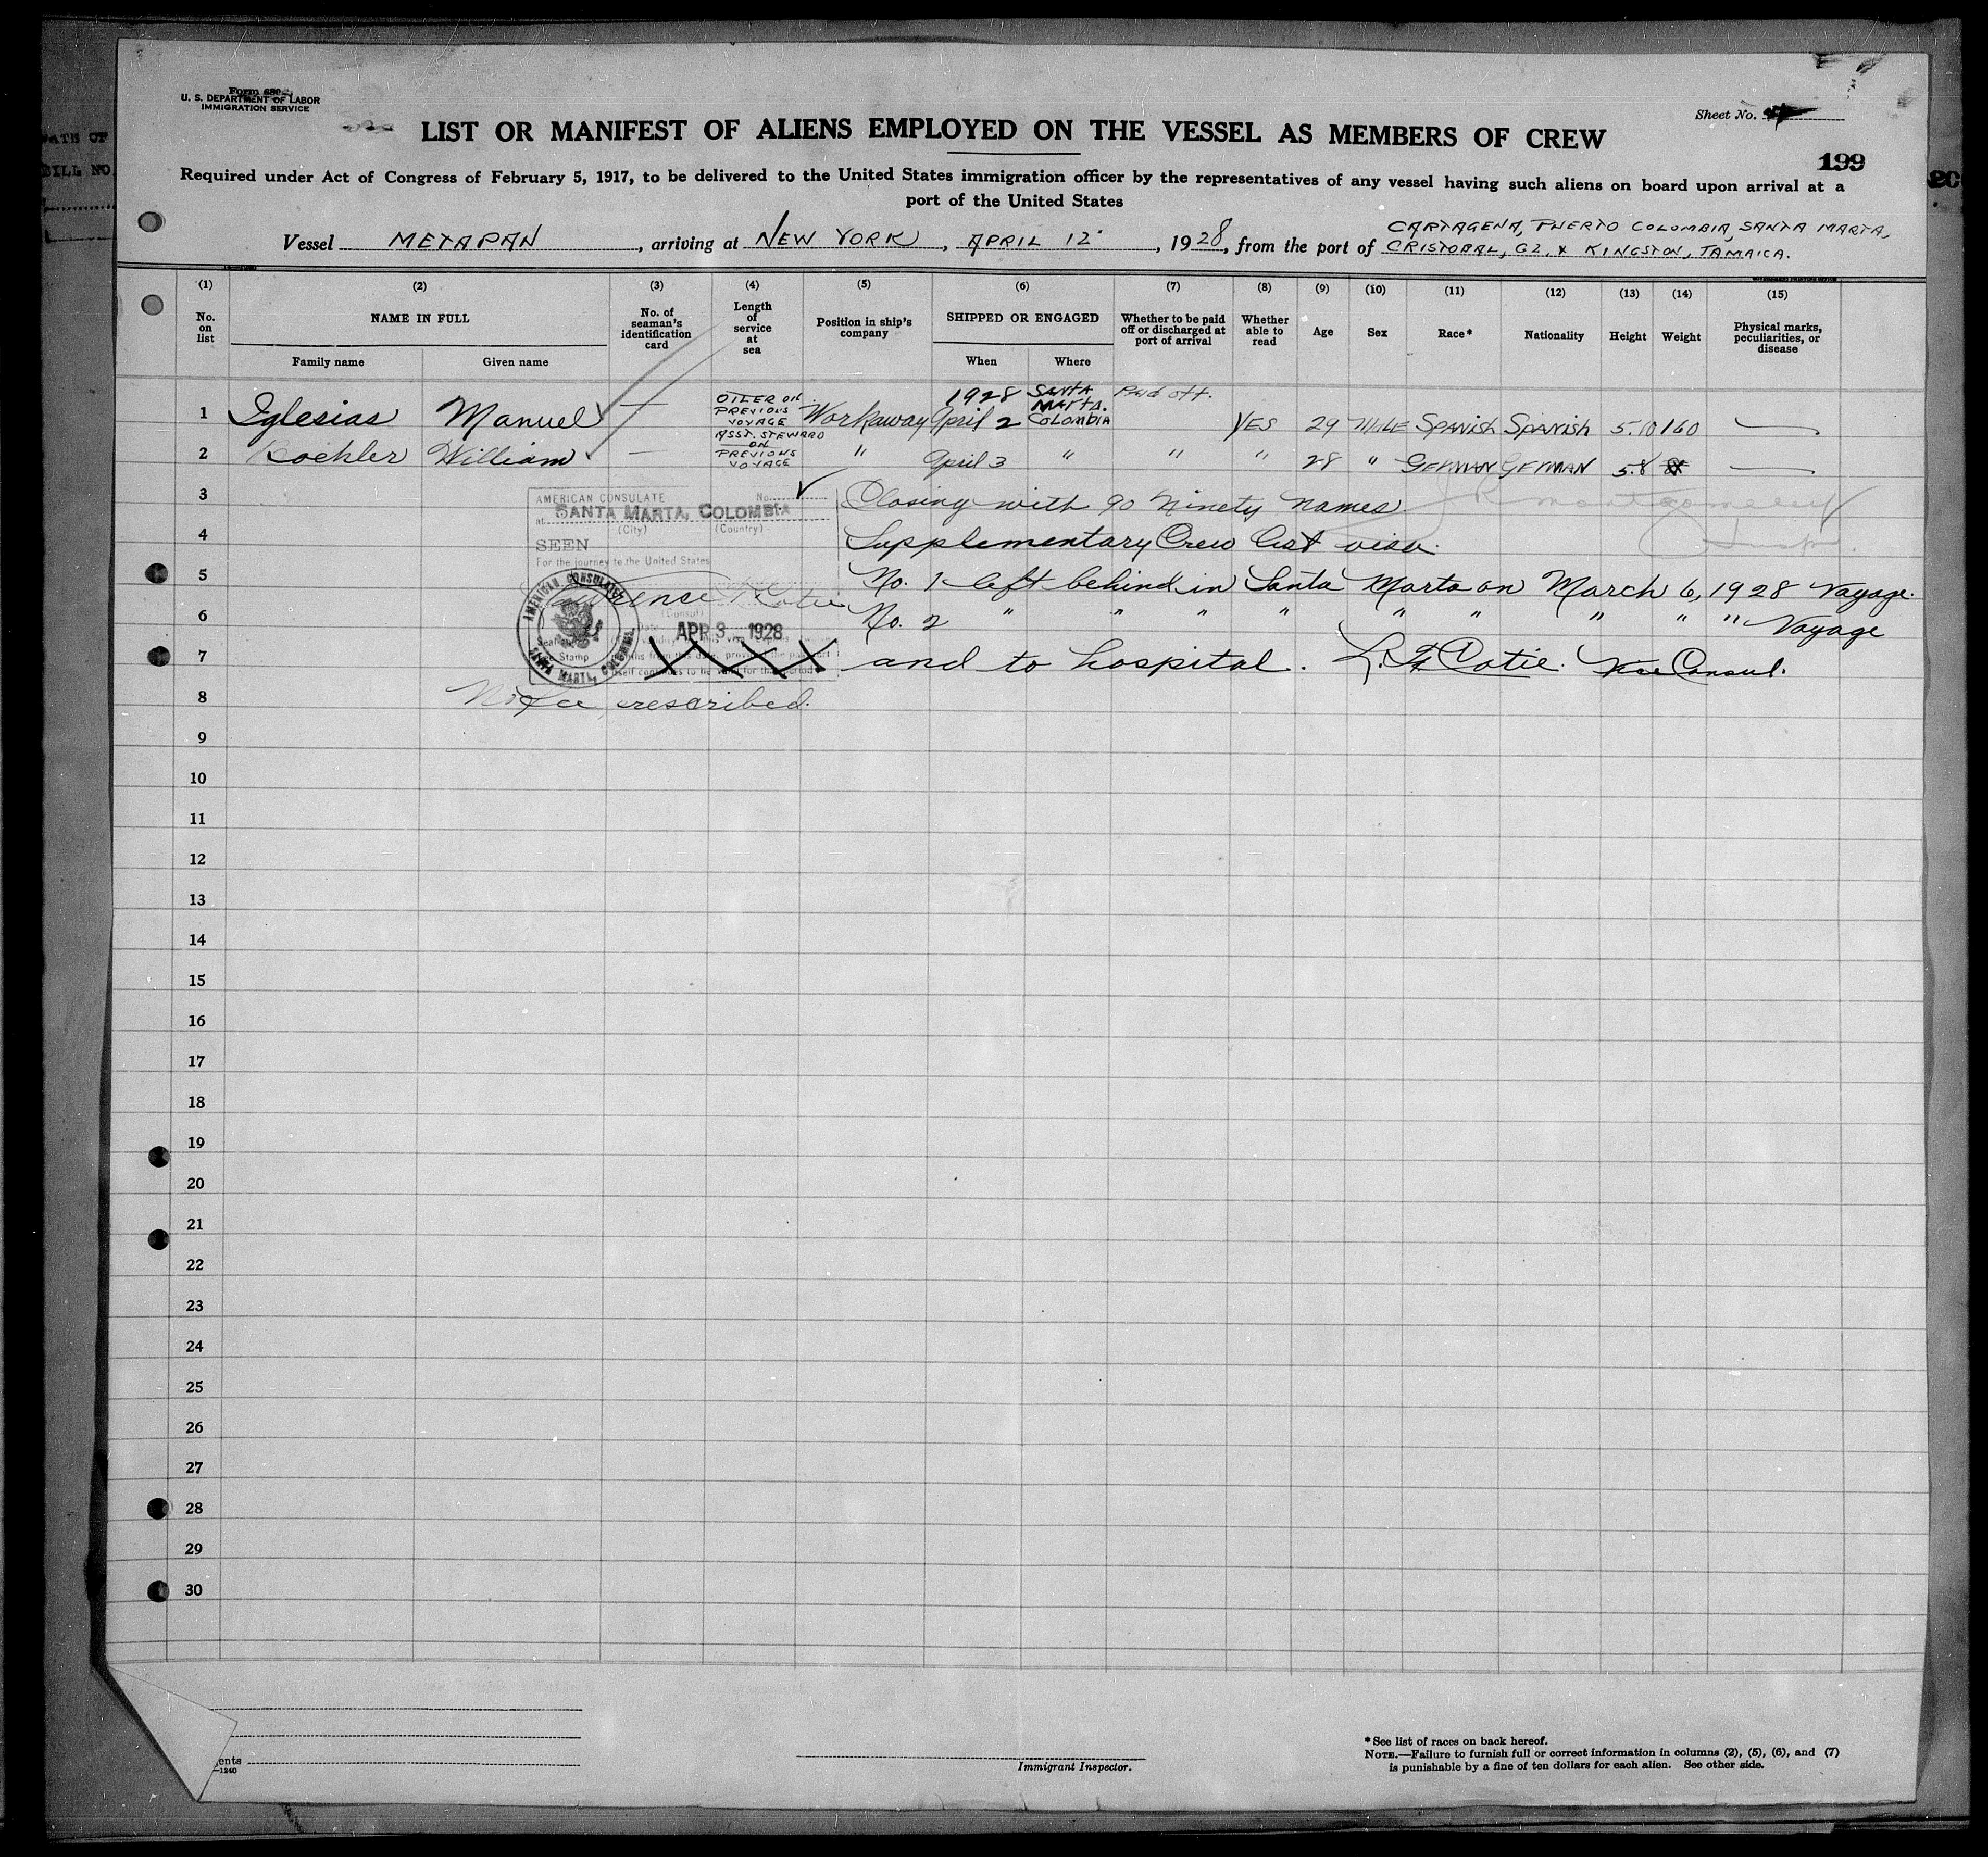 Form 680
U. S. DEPARTMENT OF LABOR
IMMIGRATION SERVICE
Sheet No.
LIST OR MANIFEST OF ALIENS EMPLOYED ON THE VESSEL AS MEMBERS OF CREW
199
Required under Act of Congress of February 5, 1917, to be delivered to the United States immigration officer by the representatives of any vessel having such aliens on board upon arrival at a
port of the United States
CARTAGENA, PUERTO COLOMBIA, SANTA MARTA,
Vessel METAPAN, arriving at NEW YORK, APRIL 12, 1928, from the port of CRISTOBAL, CZ. & KINGSTON, JAMAICA.
(1) (2) (3) (4) (5) (6) (7) (8) (9) (10) (11) (12) (13) (14) (15)
No. on list
NAME IN FULL
Family name
Given name
No. of seaman's identification card
Length of service at sea
Position in ship's company
SHIPPED OR ENGAGED
When
Where
Whether to be paid off or discharged at port of arrival
Whether able to read
Age
Sex
Race*
Nationality
Height
Weight
Physical marks, peculiarities, or disease
1 Iglesias Manuel — OILER ON PREVIOUS VOYAGE Workaway 1928 April 2 SANTA MARTA. COLOMBIA Paid off. YES 29 MALE SPANISH SPANISH 5.10 160 —
2 Koehler William — ASST. STEWARD ON PREVIOUS VOYAGE " April 3 " " " 28 " GERMAN GERMAN 5.8 —
3 Closing with 90 Ninety names.
4 Supplementary Crew list visa.
5 No. 1 left behind in Santa Marta on March 6, 1928 Voyage.
6 No. 2 " " " " " " " " " Voyage
7 and to hospital. L. F. Cotie. Vice Consul.
AMERICAN CONSULATE No.
at SANTA MARTA, COLOMBIA
(City) (Country)
SEEN
For the journey to the United States
(Consul)
Date APR 3 1928
AMERICAN CONSULATE
SANTA MARTA, COLOMBIA
XXXX
8 No fee prescribed.
9
10
11
12
13
14
15
16
17
18
19
20
21
22
23
24
25
26
27
28
29
30
ents
—1240
Immigrant Inspector.
*See list of races on back hereof.
NOTE.—Failure to furnish full or correct information in columns (2), (5), (6), and (7)
is punishable by a fine of ten dollars for each alien. See other side.